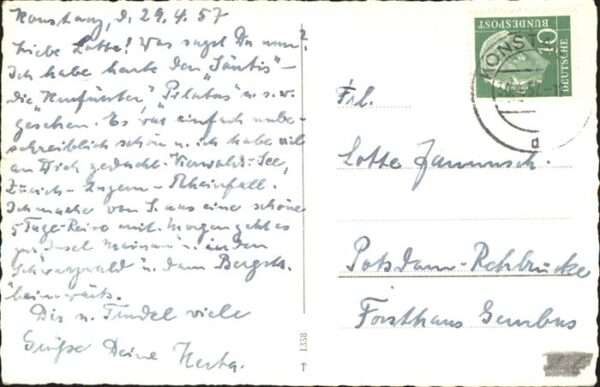 Konstanz, d. 29.4.57
Liebe Lotte! Was sagst Du nun?
Ich habe heute den "Säntis" –
die "Kurfürsten", "Pilatus" u.s.w.
gesehen. Es war einfach unbe-
schreiblich schön u. ich habe viel
an Dich gedacht. Vierwald. See,
Zürich – Luzern – Rheinfall.
Ich mache von S. aus eine schöne
5 Tage-Reise mit. Morgen geht es
zur Insel Mainau u. in den
Schwarzwald u. dann Bergstr.
heimwärts.
Dir u. viele
Grüße Deine Herta.
Frl.
Lotte
Potsdam-Rehbrücke
Forsthaus
KONST
10
DEUTSCHE
BUNDESPOST
1358